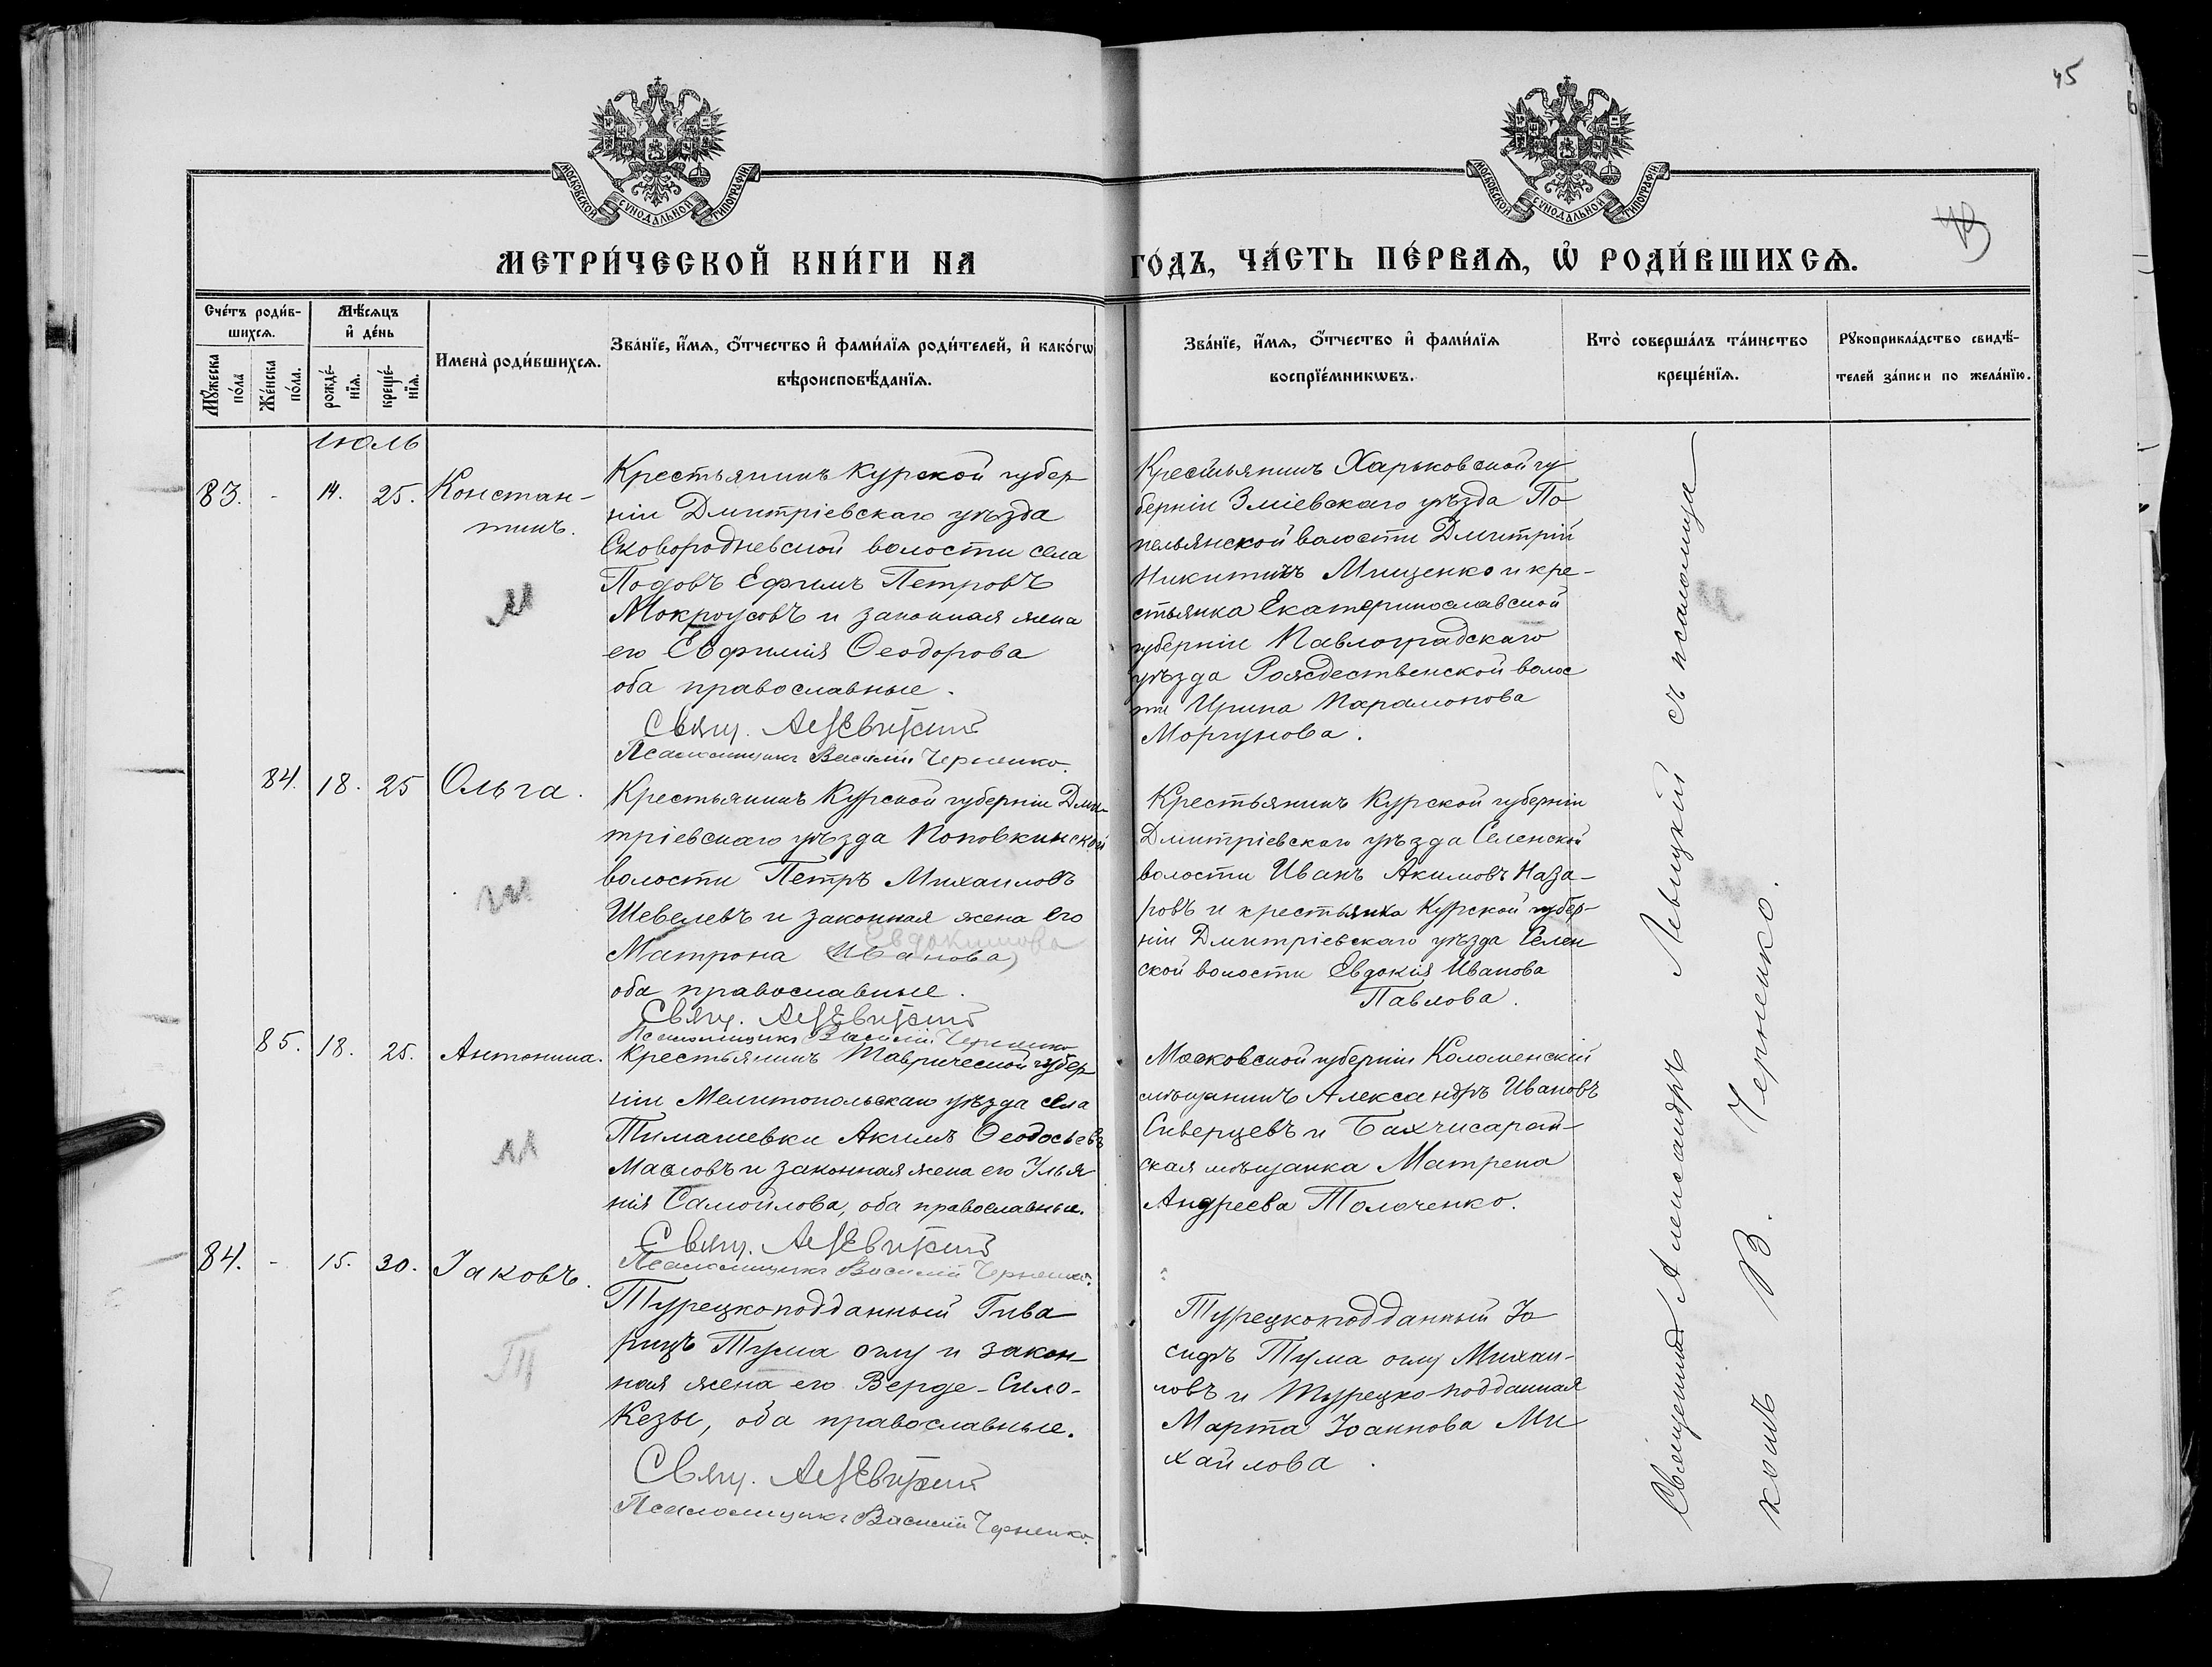 45
МОСКОВСКОЙ СѴНОДАЛЬНОЙ ТИПОГРАФІИ
МОСКОВСКОЙ СѴНОДАЛЬНОЙ ТИПОГРАФІИ
МЕТРИ́ЧЕСКОЙ КНИ́ГИ НА
ГО́ДЪ, ЧА́СТЬ ПЕ́РВАѦ, Ѡ҆ РОДИ́ВШИХСѦ.
Сче́тъ роди́в-
шихсѧ.
Мꙋ́жеска
по́ла
Же́нска
по́ла.
Мѣ́сѧцъ
и҆ де́нь
рожде́-
нїѧ.
креще́-
нїѧ.
Имена̀ роди́вшихсѧ.
Зва́нїе, и҆́мѧ, ѻ҆́тчество и҆ фами́лїѧ роди́телей, и҆ како́гѡ
вѣроисповѣ́данїѧ.
Зва́нїе, и҆́мѧ, ѻ҆́тчество и҆ фами́лїѧ
воспрїе́мникѡвъ.
Кто̀ соверша́лъ та́инство
креще́нїѧ.
Рꙋкоприкла́дство свидѣ́-
телей за́писи по жела́нїю.
Июль
83. - 14. 25. Констан-
тинъ.
М
Крестьянинъ Курской губер
ніи Дмитріевскаго уѣзда
Сковородневской волости села
Подовъ Ефимъ Петровъ
Мокроусовъ и законная жена
его Евфимія Ѳеодорова
оба православные.
Свящ. Ал. Левицкий
Псаломщикъ Василій Черненко.
Крестьянинъ Харьковской гу
берніи Зміевскаго уѣзда По
пельянской волости Дмитрій
Никитинъ Мищенко и кре-
стьянка Екатеринославской
губерніи Павлоградскаго
уѣзда Рождественской волос
ти Ирина Парамонова
Моргунова.
84. 18. 25 Ольга.
М
Крестьянинъ Курской губерніи Дми-
тріевскаго уѣзда Поповкинской
волости Петръ Михаиловъ
Шевелевъ и законная жена его
Евдокимова
Матрона (Иванова)
оба православные.
Свящ. Ал. Левицкий
Псаломщикъ Василій Черненко
Крестьянинъ Курской губерніи
Дмитріевскаго уѣзда Селенской
волости Иванъ Акимовъ Наза-
ровъ и крестьянка Курской губер-
ніи Дмитріевскаго уѣзда Селен
ской волости Евдокія Иванова
Павлова.
85. 18. 25. Антонина.
М
Крестьянинъ Таврической губер
ніи Мелитопольскаго уѣзда села
Тимашевки Акимъ Ѳеодосьевъ
Масловъ и законная жена его Улья
нія Самойлова, оба православные.
Свящ. Ал. Левицкий
Псаломщикъ Василій Черненко.
Московской губерніи Коломенскій
мѣщанинъ Александръ Ивановъ
Сиверцевъ и Бахчисарай-
ская мѣщанка Матрена
Андреева Толоченко.
84. - 15. 30. Іаковъ.
Т
Турецкоподданный Гива
рицъ Тума оглу и закон-
ная жена его Верде-Сило-
Кезы, оба православные.
Свящ. Ал. Левицкий
Псаломщикъ Василій Черненко.
Турецкоподданный Іо
сифъ Тума оглу Михаи-
ловъ и Турецко-подданная
Марта Іоаннова Ми
хайлова.
Священникъ Александръ Левицкий съ псаломщи
комъ В. Черненко.